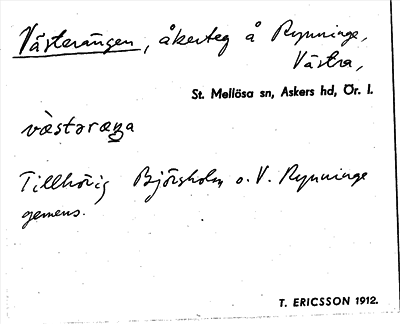 Västerängen, åkerteg å Rynninge,
Västra,
St. Mellösa sn, Askers hd, Ör. l.
væ̀stəræŋa
Tillhörig Björsholm o. V. Rynninge
gemens.
T. ERICSSON 1912.